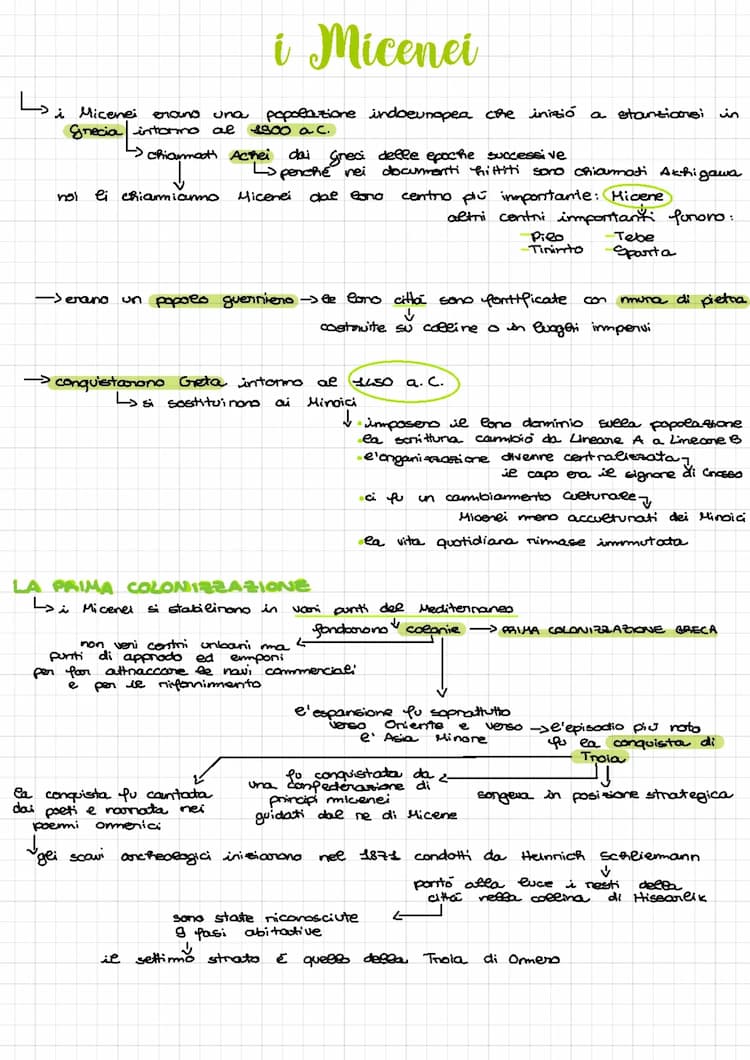 i Micenei
i Micenei erano una popolazione indoeuropea che iniziò a stanziarsi in
Grecia intorno al 1900 a.C.
chiamati Achei dai Greci delle epoche successive
perché nei documenti hittiti sono chiamati Akhigawa
noi li chiamiamo Micenei dal loro centro più importante: Micene
altri centri importanti furono:
-Pilo -Tebe
-Tirinto -Sparta
→ erano un popolo guerriero → le loro città sono fortificate con mura di pietra
costruite su colline o in luoghi impervi
→ conquistarono Creta intorno al 1450 a.C.
si sostituirono ai Minoici
• imposero il loro dominio sulla popolazione
• la scrittura cambiò da Lineare A a Lineare B
• l'organizzazione divenne centralizzata
il capo era il signore di Cnosso
• ci fu un cambiamento culturale
Micenei meno acculturati dei Minoici
• la vita quotidiana rimase immutata
LA PRIMA COLONIZZAZIONE
i Micenei si stabilirono in vari punti del Mediterraneo
fondarono colonie → PRIMA COLONIZZAZIONE GRECA
non veri centri urbani ma
punti di approdo ed empori
per far attraccare le navi commerciali
e per il rifornimento
l'espansione fu soprattutto
verso Oriente e verso
l'Asia Minore
→ l'episodio più noto
fu la conquista di
Troia
sorgeva in posizione strategica
fu conquistata da
una confederazione di
principi micenei
guidati dal re di Micene
la conquista fu cantata
dai poeti e narrata nei
poemi omerici
gli scavi archeologici iniziarono nel 1871 condotti da Heinrich Schliemann
portò alla luce i resti della
città nella collina di Hissarlik
sono state riconosciute
9 fasi abitative
il settimo strato è quello della Troia di Omero